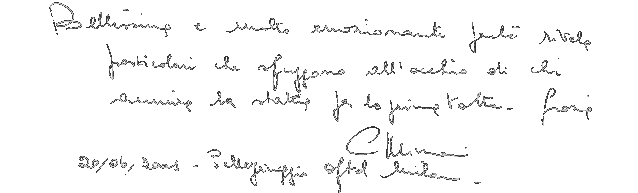 Bellissime e molto emozionanti perché rivela
particolari che sfuggono all'occhio di chi
ammira la statua per la prima volta. Grazie
20/06/2001 - Pellegrinaggio Oftal Milano -